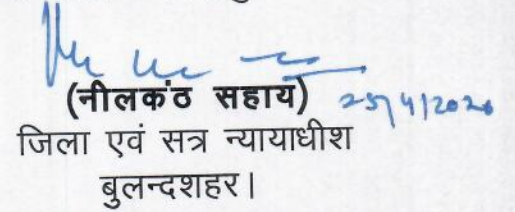 (नीलकंठ सहाय) 25/4/2020
जिला एवं सत्र न्यायाधीश
बुलन्दशहर।